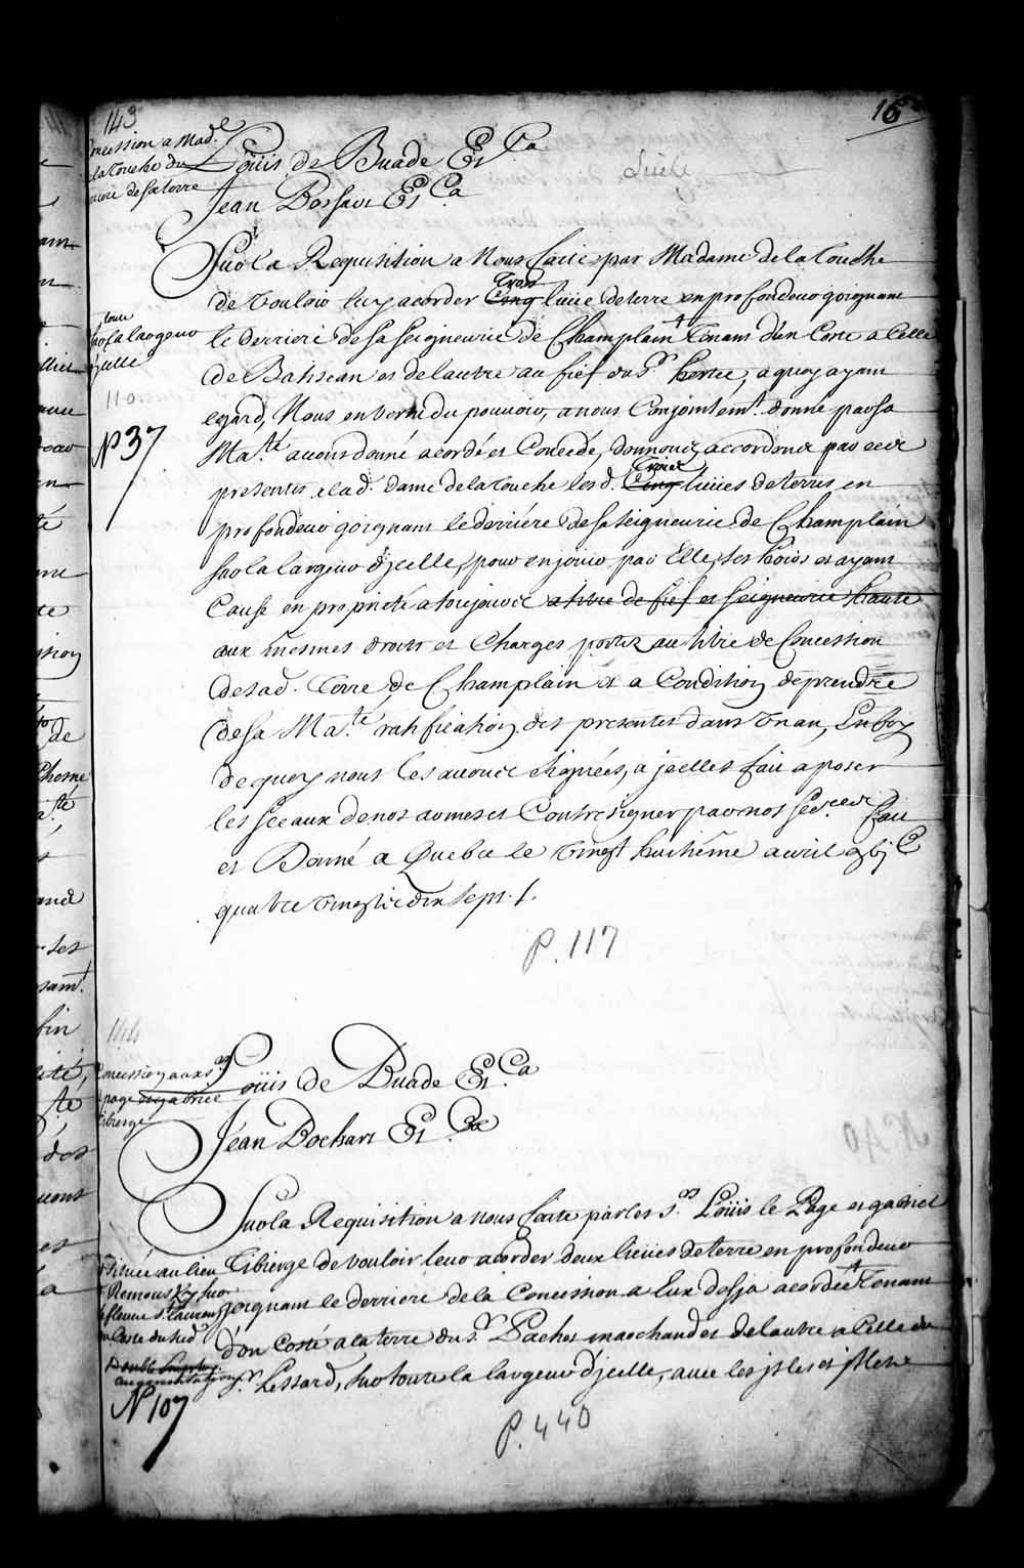 143
16
Concession a Mad.e
de la Touche du
derriere de sa terre
Loüis de Buade Et Ca
Jean Bochart Et Ca
Sur la Requisition a Nous faitte par Madame de la Touche
trois
de vouloir luy acorder Cinq lieüe de terre en profondeur joignant
le derriere de sa seigneurie de Champlain + tenant d'un Costé a Celle
toute
sur la largeur
d'jcelle
de Batiscan et de lautre au fief du Sr hertel, a quoy ayant
110
egard, Nous en vertu du pouvoir, a nous Conjointemt. donné par Sa
No 37
Ma.té auons donné acordé et Concedé, donnons accordons par ces
Trois
presentes a lad. dame de la Touche lesd. Cinq lieües de terres en
profondeur joignant le derriére de sa seigneurie de Champlain
sur la largeur d'jcelle, pour en joüir par Elle, ses hoirs et ayant
Cause en proprieté a toujours a titre de fief et seigneurie haute
aux mesmes droits et Charges portez au titre de Concession
de sad. Terre de Champlain et a Condition de prendre
de sa Ma.té ratification des presentes dans Un an, En foy
de quoy nous les auons signées, a jcelles fait aposer
les sceaux de nos armes et Contresigner par nos Secres. fait
et Donné a Quebec le Vingt huitiéme auril gbj C
quatre vingts dix sept. /.
P. 117
144
Concession aux Srs
le page et gabriel
Tibierge
Loüis de Buade Et Ca
Jean Bochart Et Ca
Sur la Requisition a nous faite par les Srs Loüis le Page et gabriel
Tibierge de vouloir leur acorder deux lieües de terre en profondeur
joignant le derriere de la Concession a Eux desja acordée + tenant
+ Située au lieu
Remousky sur
le fleuve St laurens
d'un Costé a la terre du Sr Pachot marchand et de lautre a Celle du
Sr Lessard, sur toute la largeur d'jcelle, auec les jsles et jslets
augmentation
No 107
P. 440